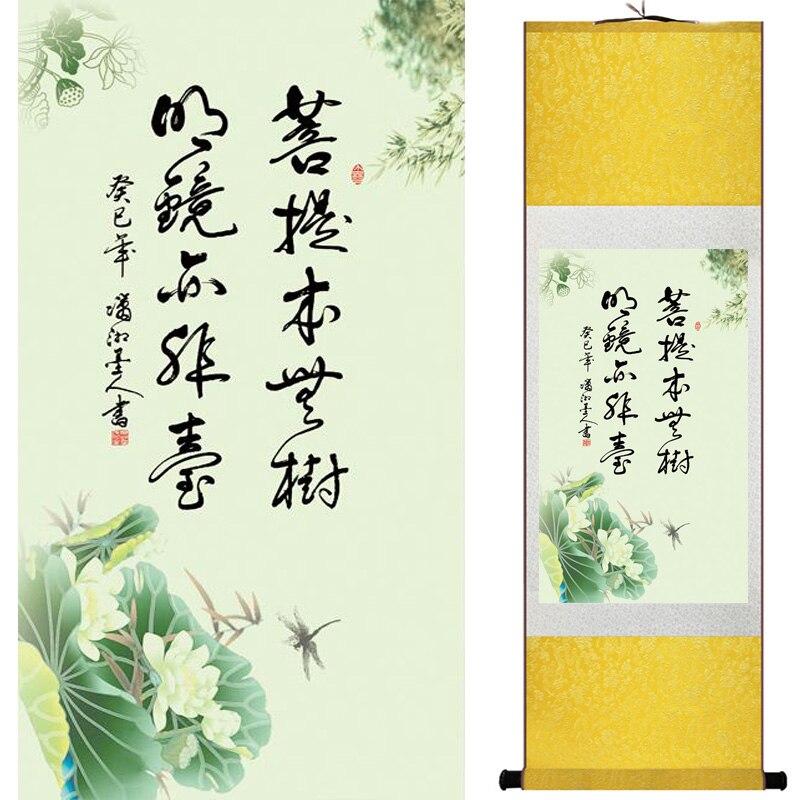 菩提本無樹
明鏡亦非臺
癸巳年 瀟湘墨人書
菩提本無樹
明鏡亦非臺
癸巳年 瀟湘墨人書